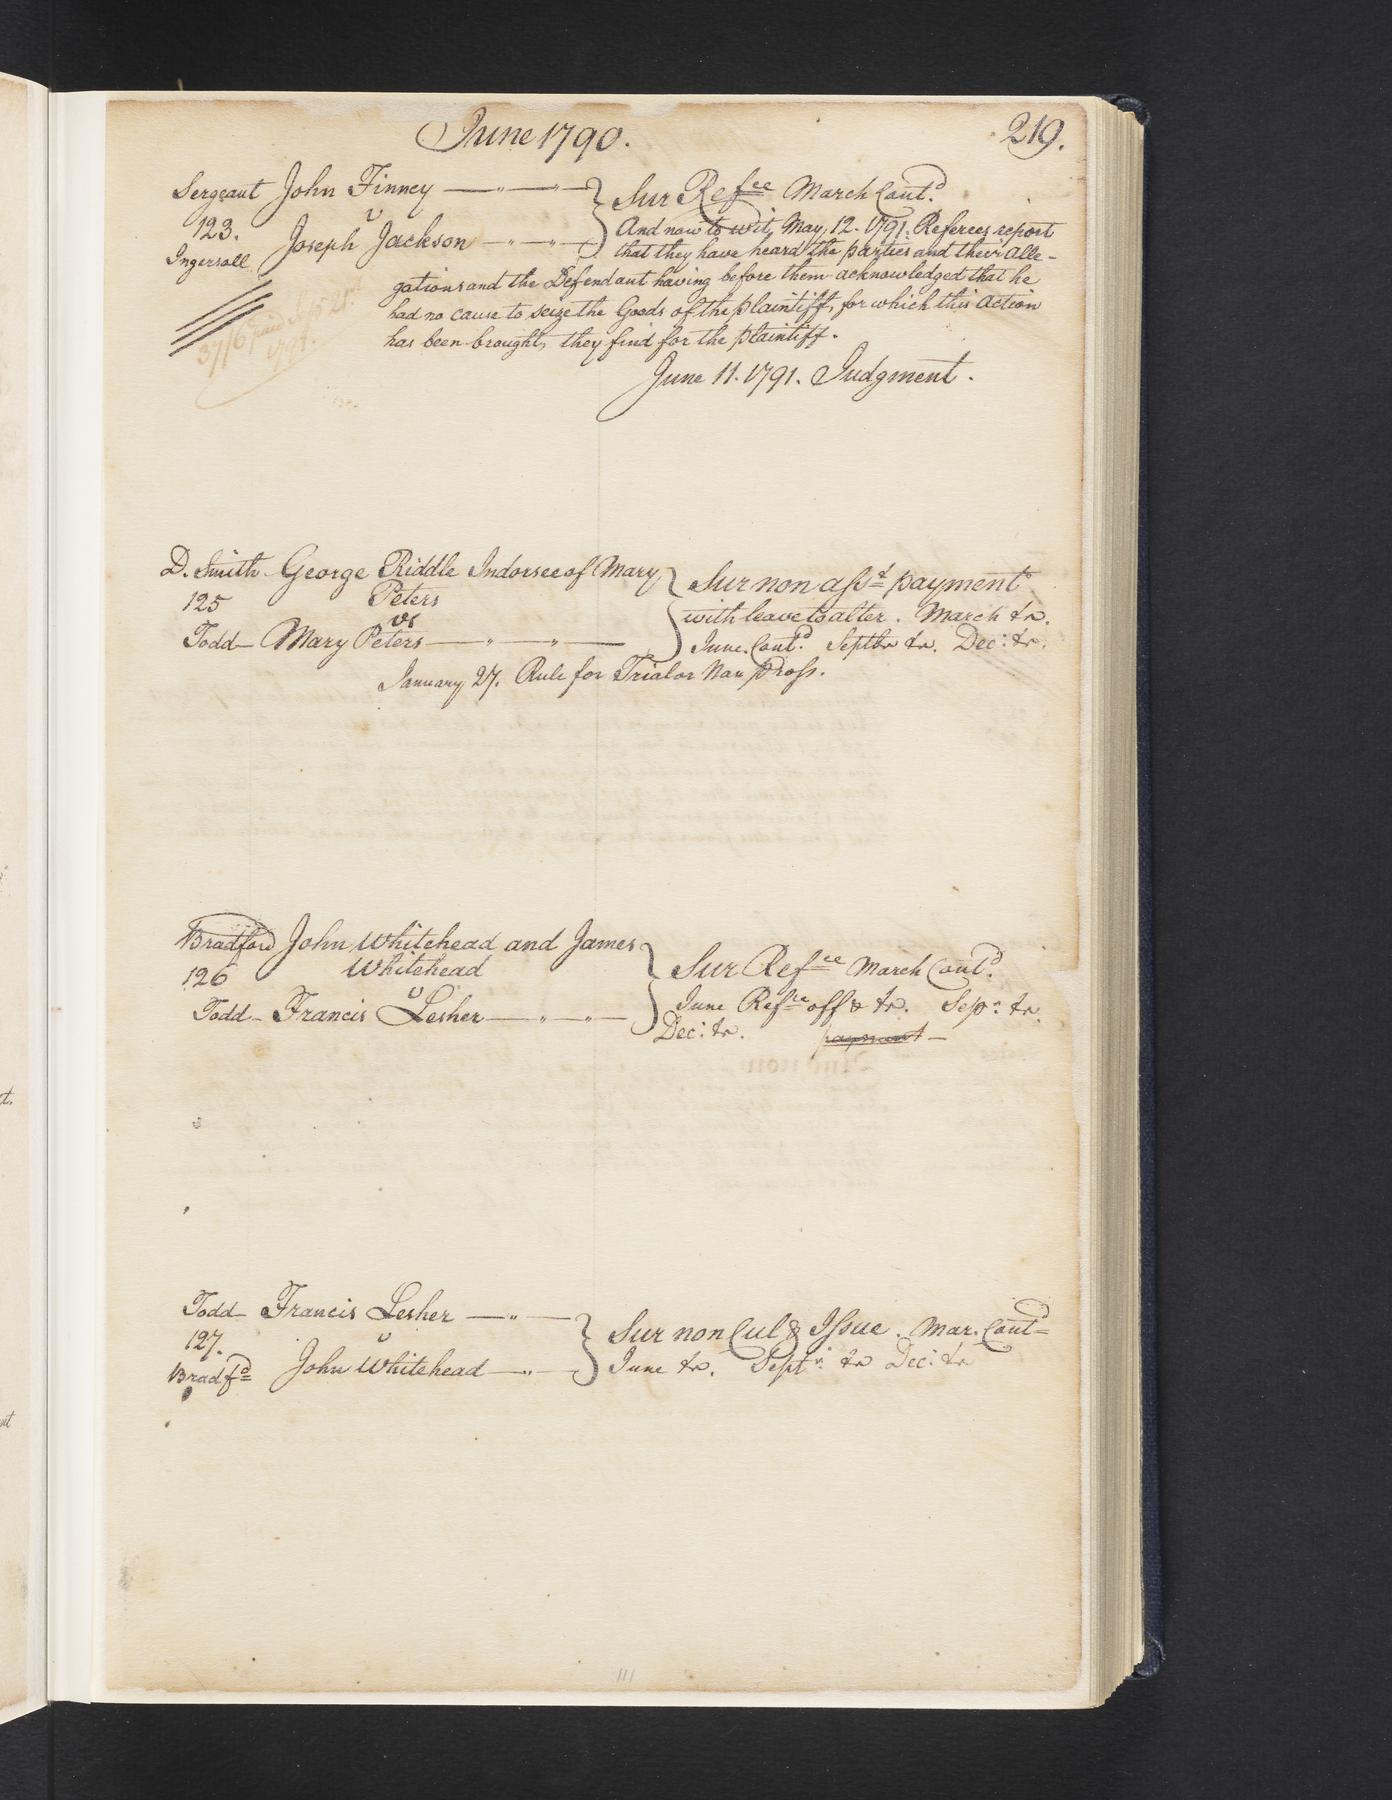 June 1790.
219.
Sergeant John Finney
v
123.
Joseph Jackson
Ingersoll
Sur Refce March Contd.
And now to wit, May, 12. 1791. Referees report
that they have heard the parties and their Alle-
gations and the Defendant having before them acknowledged that he
had no cause to seize the Goods of the plaintiff, for which this Action
has been brought, they find for the plaintiff.
June 11. 1791. Judgment.
37/6 paid
1791.
D. Smith George Riddle Indorsee of Mary
125 Peters
vs
Todd Mary Peters
Sur non asst payment
with leave to alter. March tr.
June. Contd. Septbr tr. Dec: tr.
January 27. Rule for Trial or Non pross.
Bradford John Whitehead and James
126 Whitehead
v
Todd Francis Lesher
Sur Refce March Contd.
June Refce off & tr. Sepr. tr.
Dec: tr. payment
Todd Francis Lesher
127. v
Bradfd John Whitehead
Sur non Cul & Issue. Mar. Contd
June tr. Septr. tr Dec: tr
111